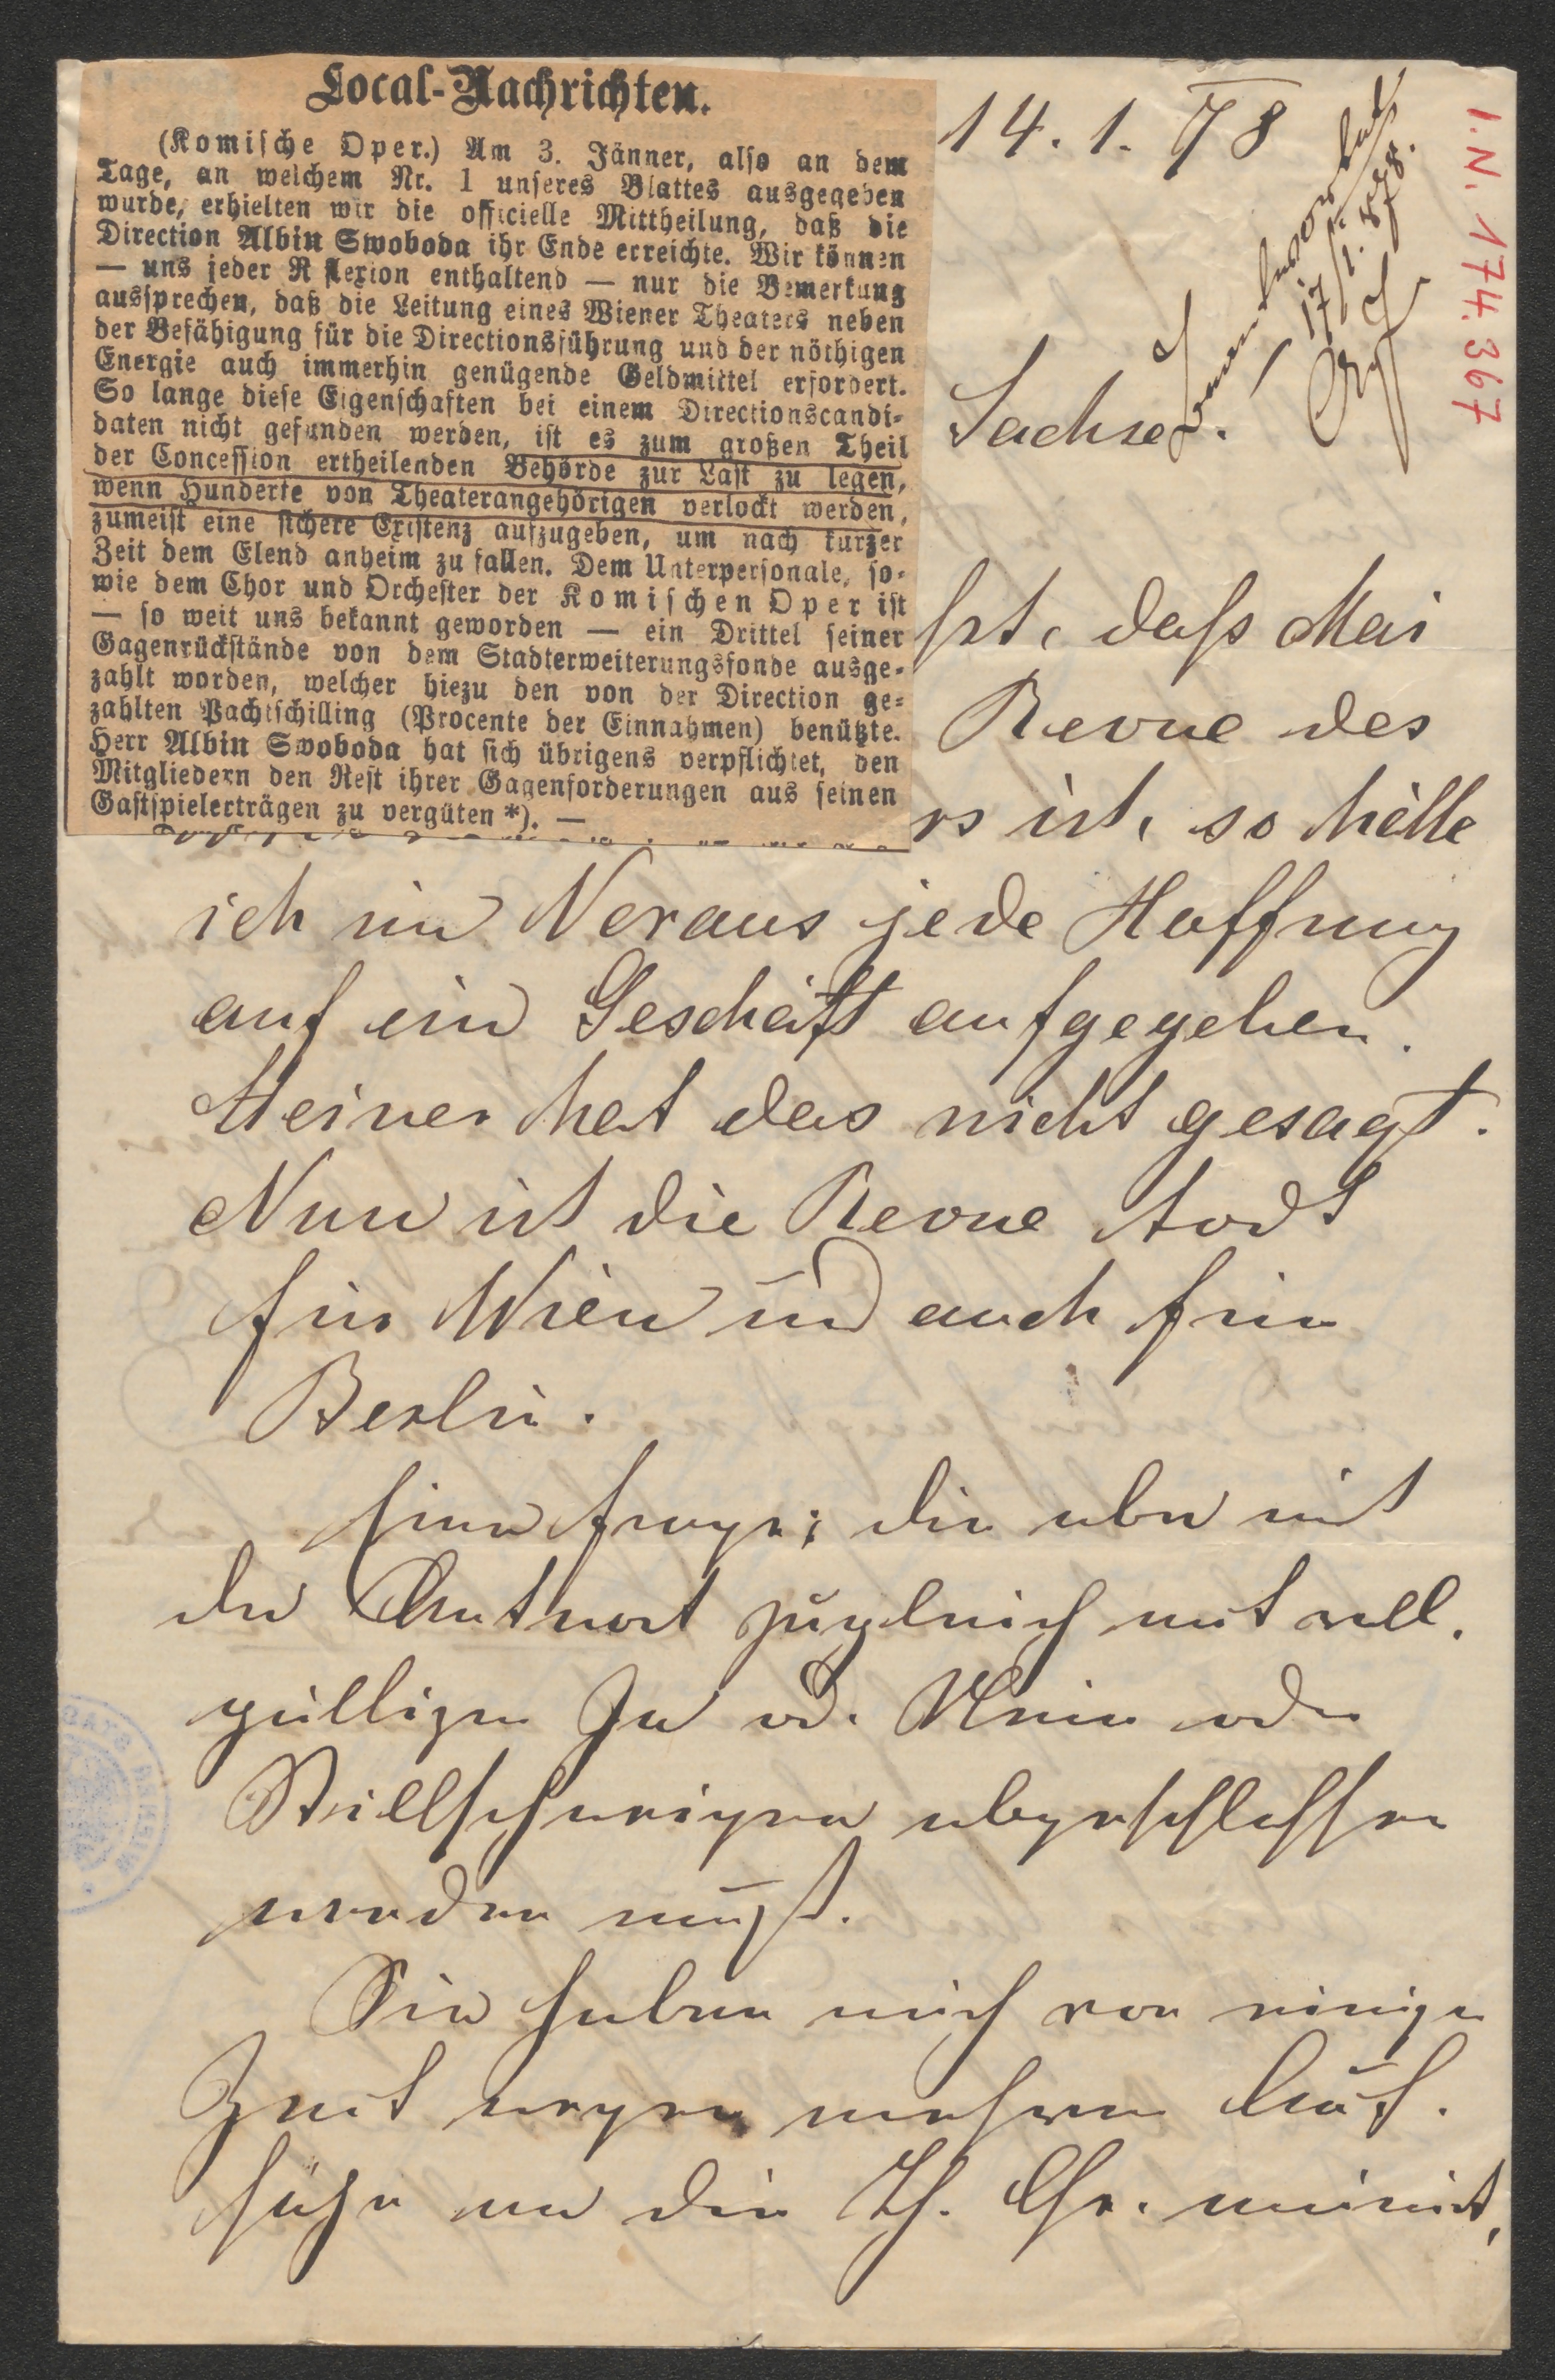 Local-Nachrichten.
(Komische Oper.) Am 3. Jänner, also an dem
Tage, an welchem Nr. 1 unseres Blattes ausgegeben
wurde, erhielten wir die officielle Mittheilung, daß die
Direction Albin Swoboda ihr Ende erreichte. Wir können
— uns jeder R flexion enthaltend — nur die Bemerkung
aussprechen, daß die Leitung eines Wiener Theaters neben
der Befähigung für die Directionsführung und der nöthigen
Energie auch immerhin genügende Geldmittel erfordert.
So lange diese Eigenschaften bei einem Directionscandi-
daten nicht gefunden werden, ist es zum großen Theil
der Concession ertheilenden Behörde zur Last zu legen,
wenn Hunderte von Theaterangehörigen verlockt werden,
zumeist eine sichere Existenz aufzugeben, um nach kurzer
Zeit dem Elend anheim zu fallen. Dem Unterpersonale, so-
wie dem Chor und Orchester der Komischen Oper ist
— so weit uns bekannt geworden — ein Drittel seiner
Gagenrückstände von dem Stadterweiterungsfonde ausge-
zahlt worden, welcher hiezu den von der Direction ge-
zahlten Pachtschilling (Procente der Einnahmen) benützte.
Herr Albin Swoboda hat sich übrigens verpflichtet, den
Mitgliedern den Rest ihrer Gagenforderungen aus seinen
Gastspielerträgen zu vergüten *). —
14. 1. 78
I.N. 174.367
17/1. 878.
Sachse
ßt, daß Mei
Revue des
rs ist, so hätte
ich im Voraus jede Hoffnung
auf ein Geschäft aufgegeben.
Steiner hat das nicht gesagt.
Nun ist die Revue todt
für Wien und auch für
Berlin.
Eine Frage; die aber mit
der Antwort zugleich mit voll.
gültigen Ja od. Nein oder
Stillschweigen abgeschlossen
werden muß.
Sie haben mich vor einiger
Zeit wegen mehrerer
an die Th. Chr.